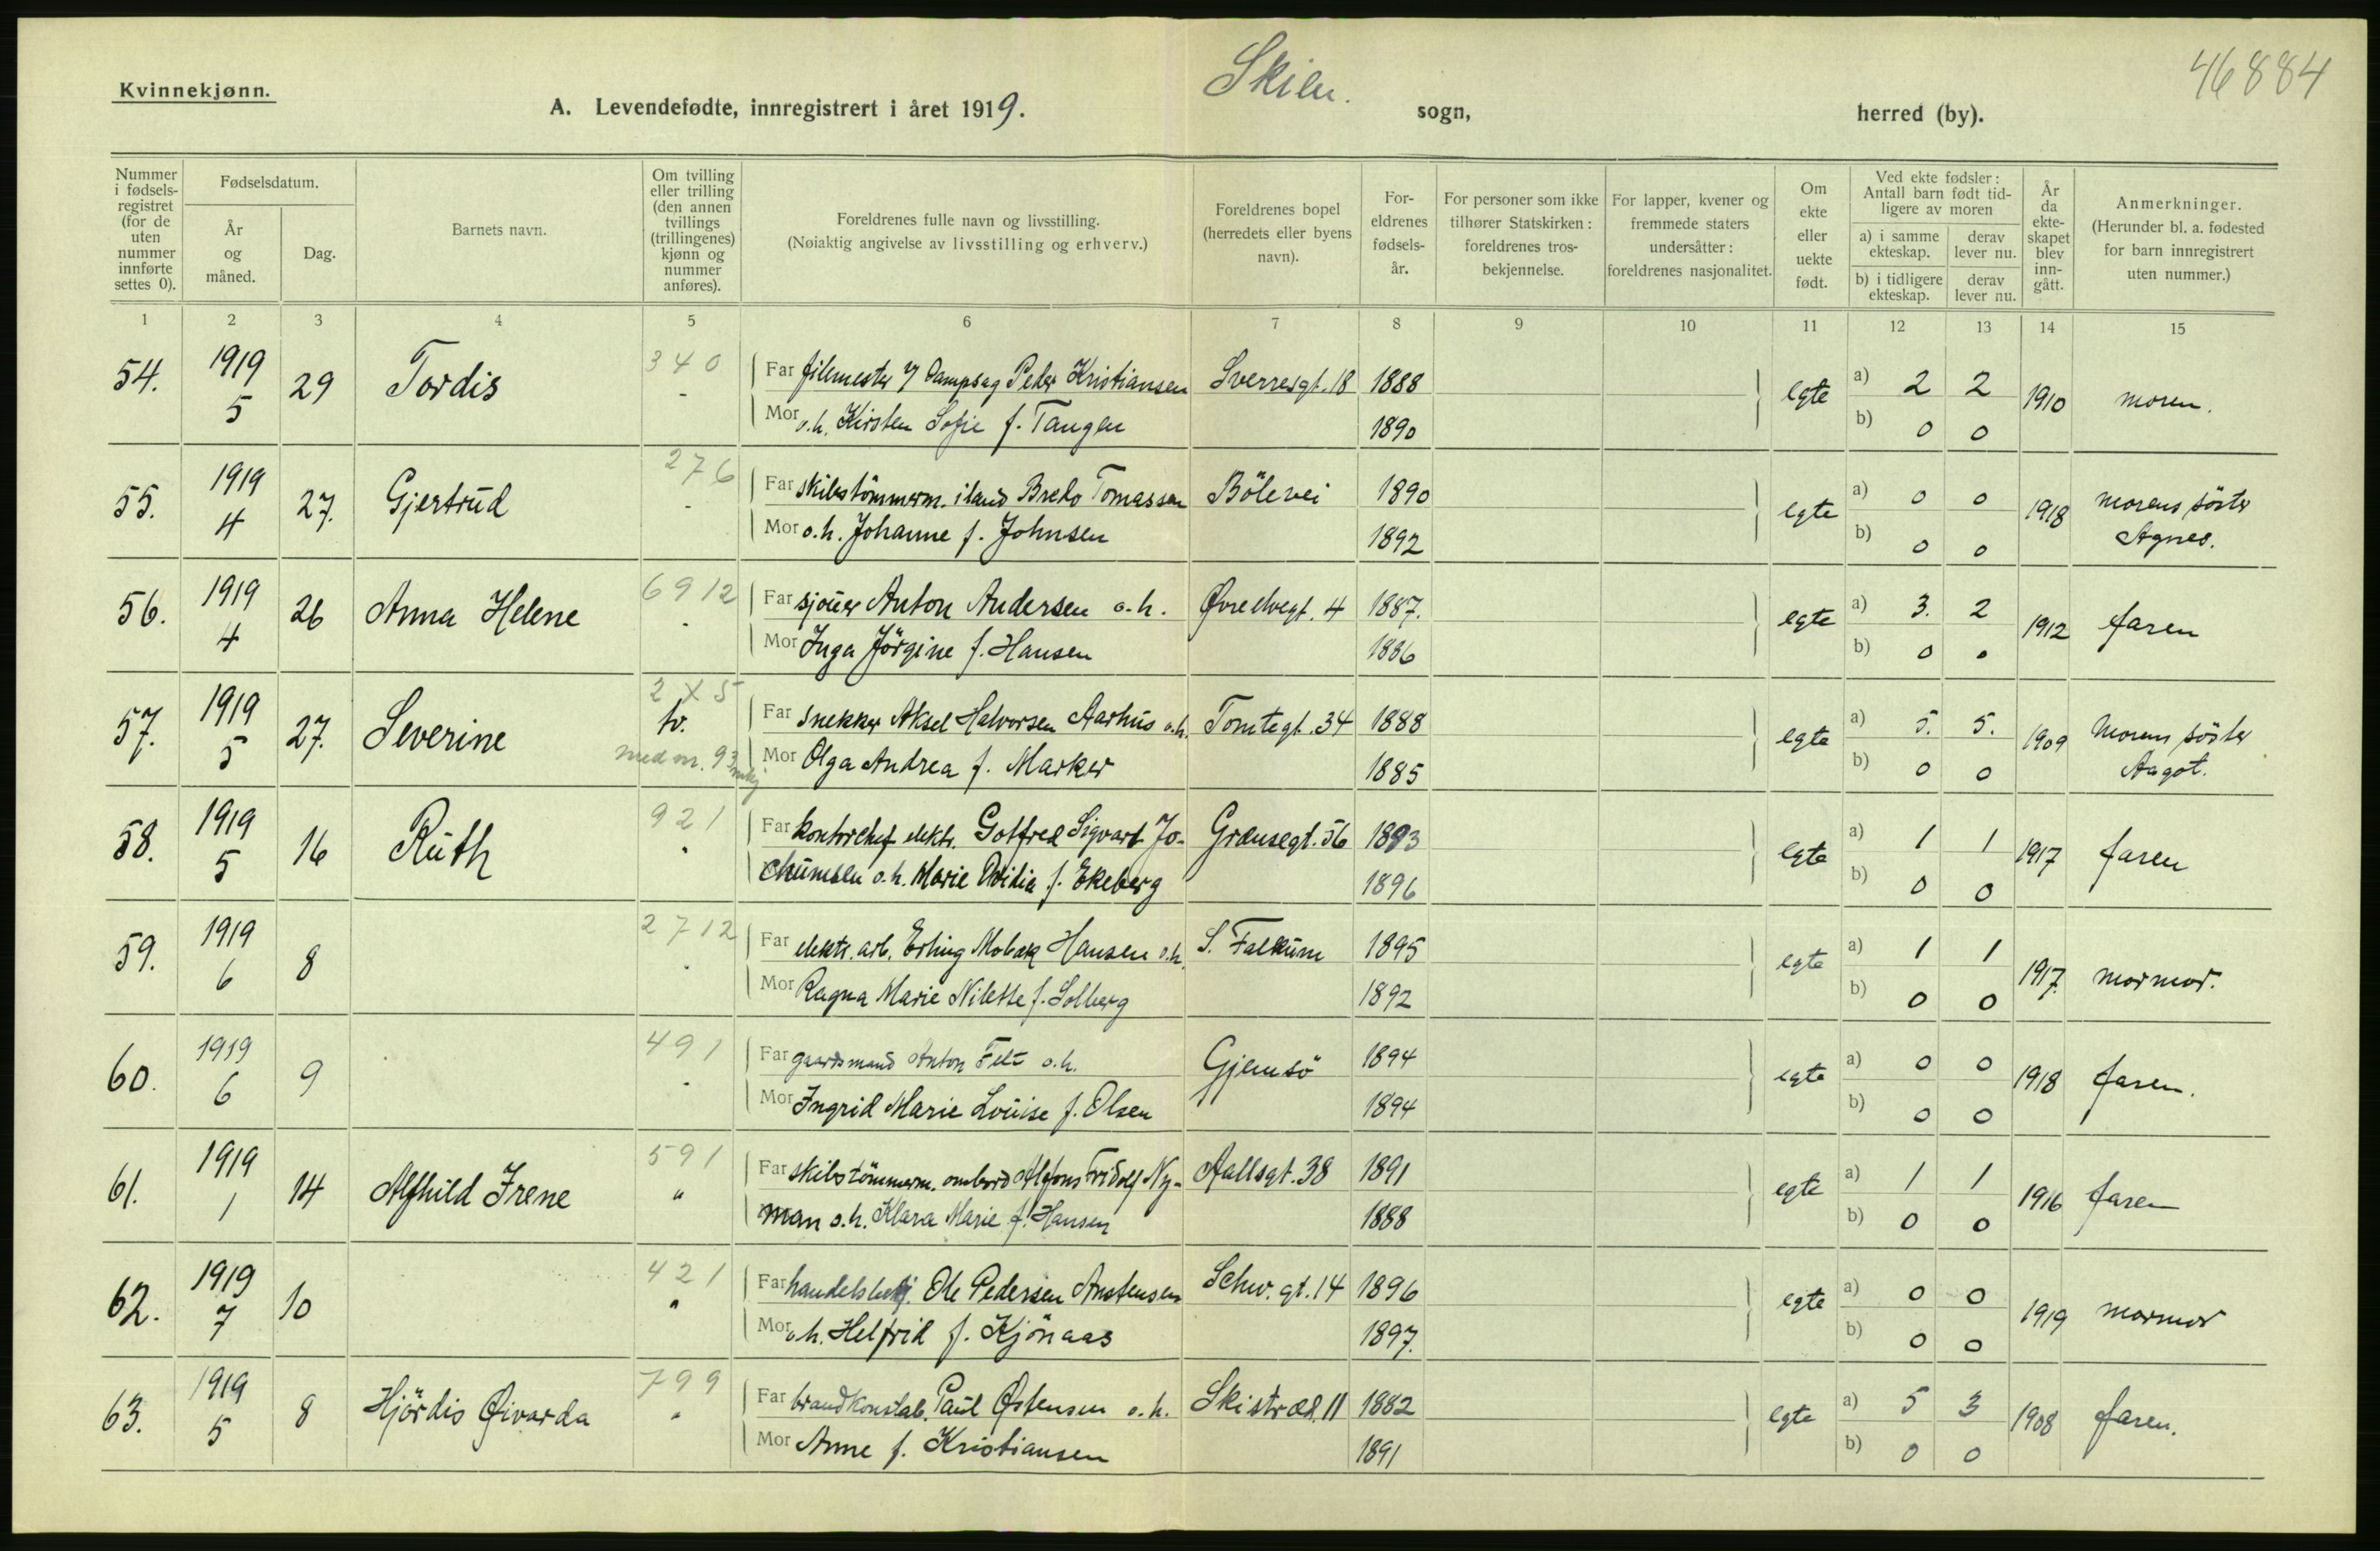 Kvinnekjønn.
Skien.
46884
A. Levendefødte, innregistrert i året 1919.
sogn,
herred (by).
Nummer i fødsels-registret (for de uten nummer innførte settes 0).
Fødselsdatum.
År og måned.
Dag.
Barnets navn.
Om tvilling eller trilling (den annen tvillings (trillingenes) kjønn og nummer anføres).
Foreldrenes fulle navn og livsstilling.
(Nøiaktig angivelse av livsstilling og erhverv.)
Foreldrenes bopel (herredets eller byens navn).
For-eldrenes fødsels-år.
For personer som ikke tilhører Statskirken: foreldrenes tros-bekjennelse.
For lapper, kvener og fremmede staters undersåtter: foreldrenes nasjonalitet.
Om ekte eller uekte født.
Ved ekte fødsler: Antall barn født tid-ligere av moren
a) i samme ekteskap.
derav lever nu.
b) i tidligere ekteskap.
derav lever nu.
År da ekte-skapet blev inn-gått.
Anmerkninger.
(Herunder bl. a. fødested for barn innregistrert uten nummer.)
1 2 3 4 5 6 7 8 9 10 11 12 13 14 15
54. 1919 5 29 Tordis 340 - Far filemester v/ Dampsag Peder Kristiansen Sverresgt. 18 1888 egte a) 2 2 1910 moren.
Mor o.h. Kirsten Sofie f. Tangen 1890 b) 0 0
55. 1919 4 27. Gjertrud 276 - Far skibstömmerm. iland Bredo Tomassen Bölevei 1890 egte a) 0 0 1918 morens söster
Mor o.h. Johanne f. Johnsen 1892 b) 0 0 Agnes.
56. 1919 4 26 Anna Helene 6912 - Far sjouer Anton Andersen o.h. Øvre Elvegt. 4 1887. egte a) 3. 2 1912 faren
Mor Inga Jörgine f. Hansen 1886 b) 0 0
57. 1919 5 27. Severine 2 X 5 tv. Far snekker Aksel Halvorsen Aarhus o.h. Tomtegt. 34 1888 egte a) 5. 5. 1909 Morens söster
med nr. 93 mkj Mor Olga Andrea f. Marker 1885 b) 0 0 Aagot.
58. 1919 5 16 Ruth 921 - Far kontorchef elektr. Gotfred Sigvart Jo- Grænsegt. 56 1893 egte a) 1 1 1917 faren
chumsen o.h. Marie Ovidia f. Ekeberg 1896 b) 0 0
59. 1919 6 8 2712 - Far elektr. arb. Erling Mobæk Hansen o.h. S. Falkum 1895 egte a) 1 1 1917. mormor.
Mor Ragna Marie Nilette f. Solberg 1892 b) 0 0
60. 1919 6 9 491 - Far gaardsmand Anton Felt o.h. Gjemsö 1894 egte a) 0 0 1918 faren.
Mor Ingrid Marie Louise f. Olsen 1894 b) 0 0
61. 1919 1 14 Alfhild Irene 591 " Far skibstömmerm. ombord Alfons Fridolf Ny- Aallsgt. 38 1891 egte a) 1 1 1916 faren
man o.h. Klara Marie f. Hansen 1888 b) 0 0
62. 1919 7 10 421 " Far handelsbetj. Ole Pedersen Anstensen Schw. gt. 14 1896 egte a) 0 0 1919 mormor
Mor o.h. Helfrid f. Kjönaas 1897. b) 0 0
63. 1919 5 8 Hjördis Øivarda 799 " Far brandkonstab. Paul Østensen o.h. Skistræd. 11 1882 egte a) 5 3 1908 faren.
Mor Anne f. Kristiansen 1891 b) 0 0